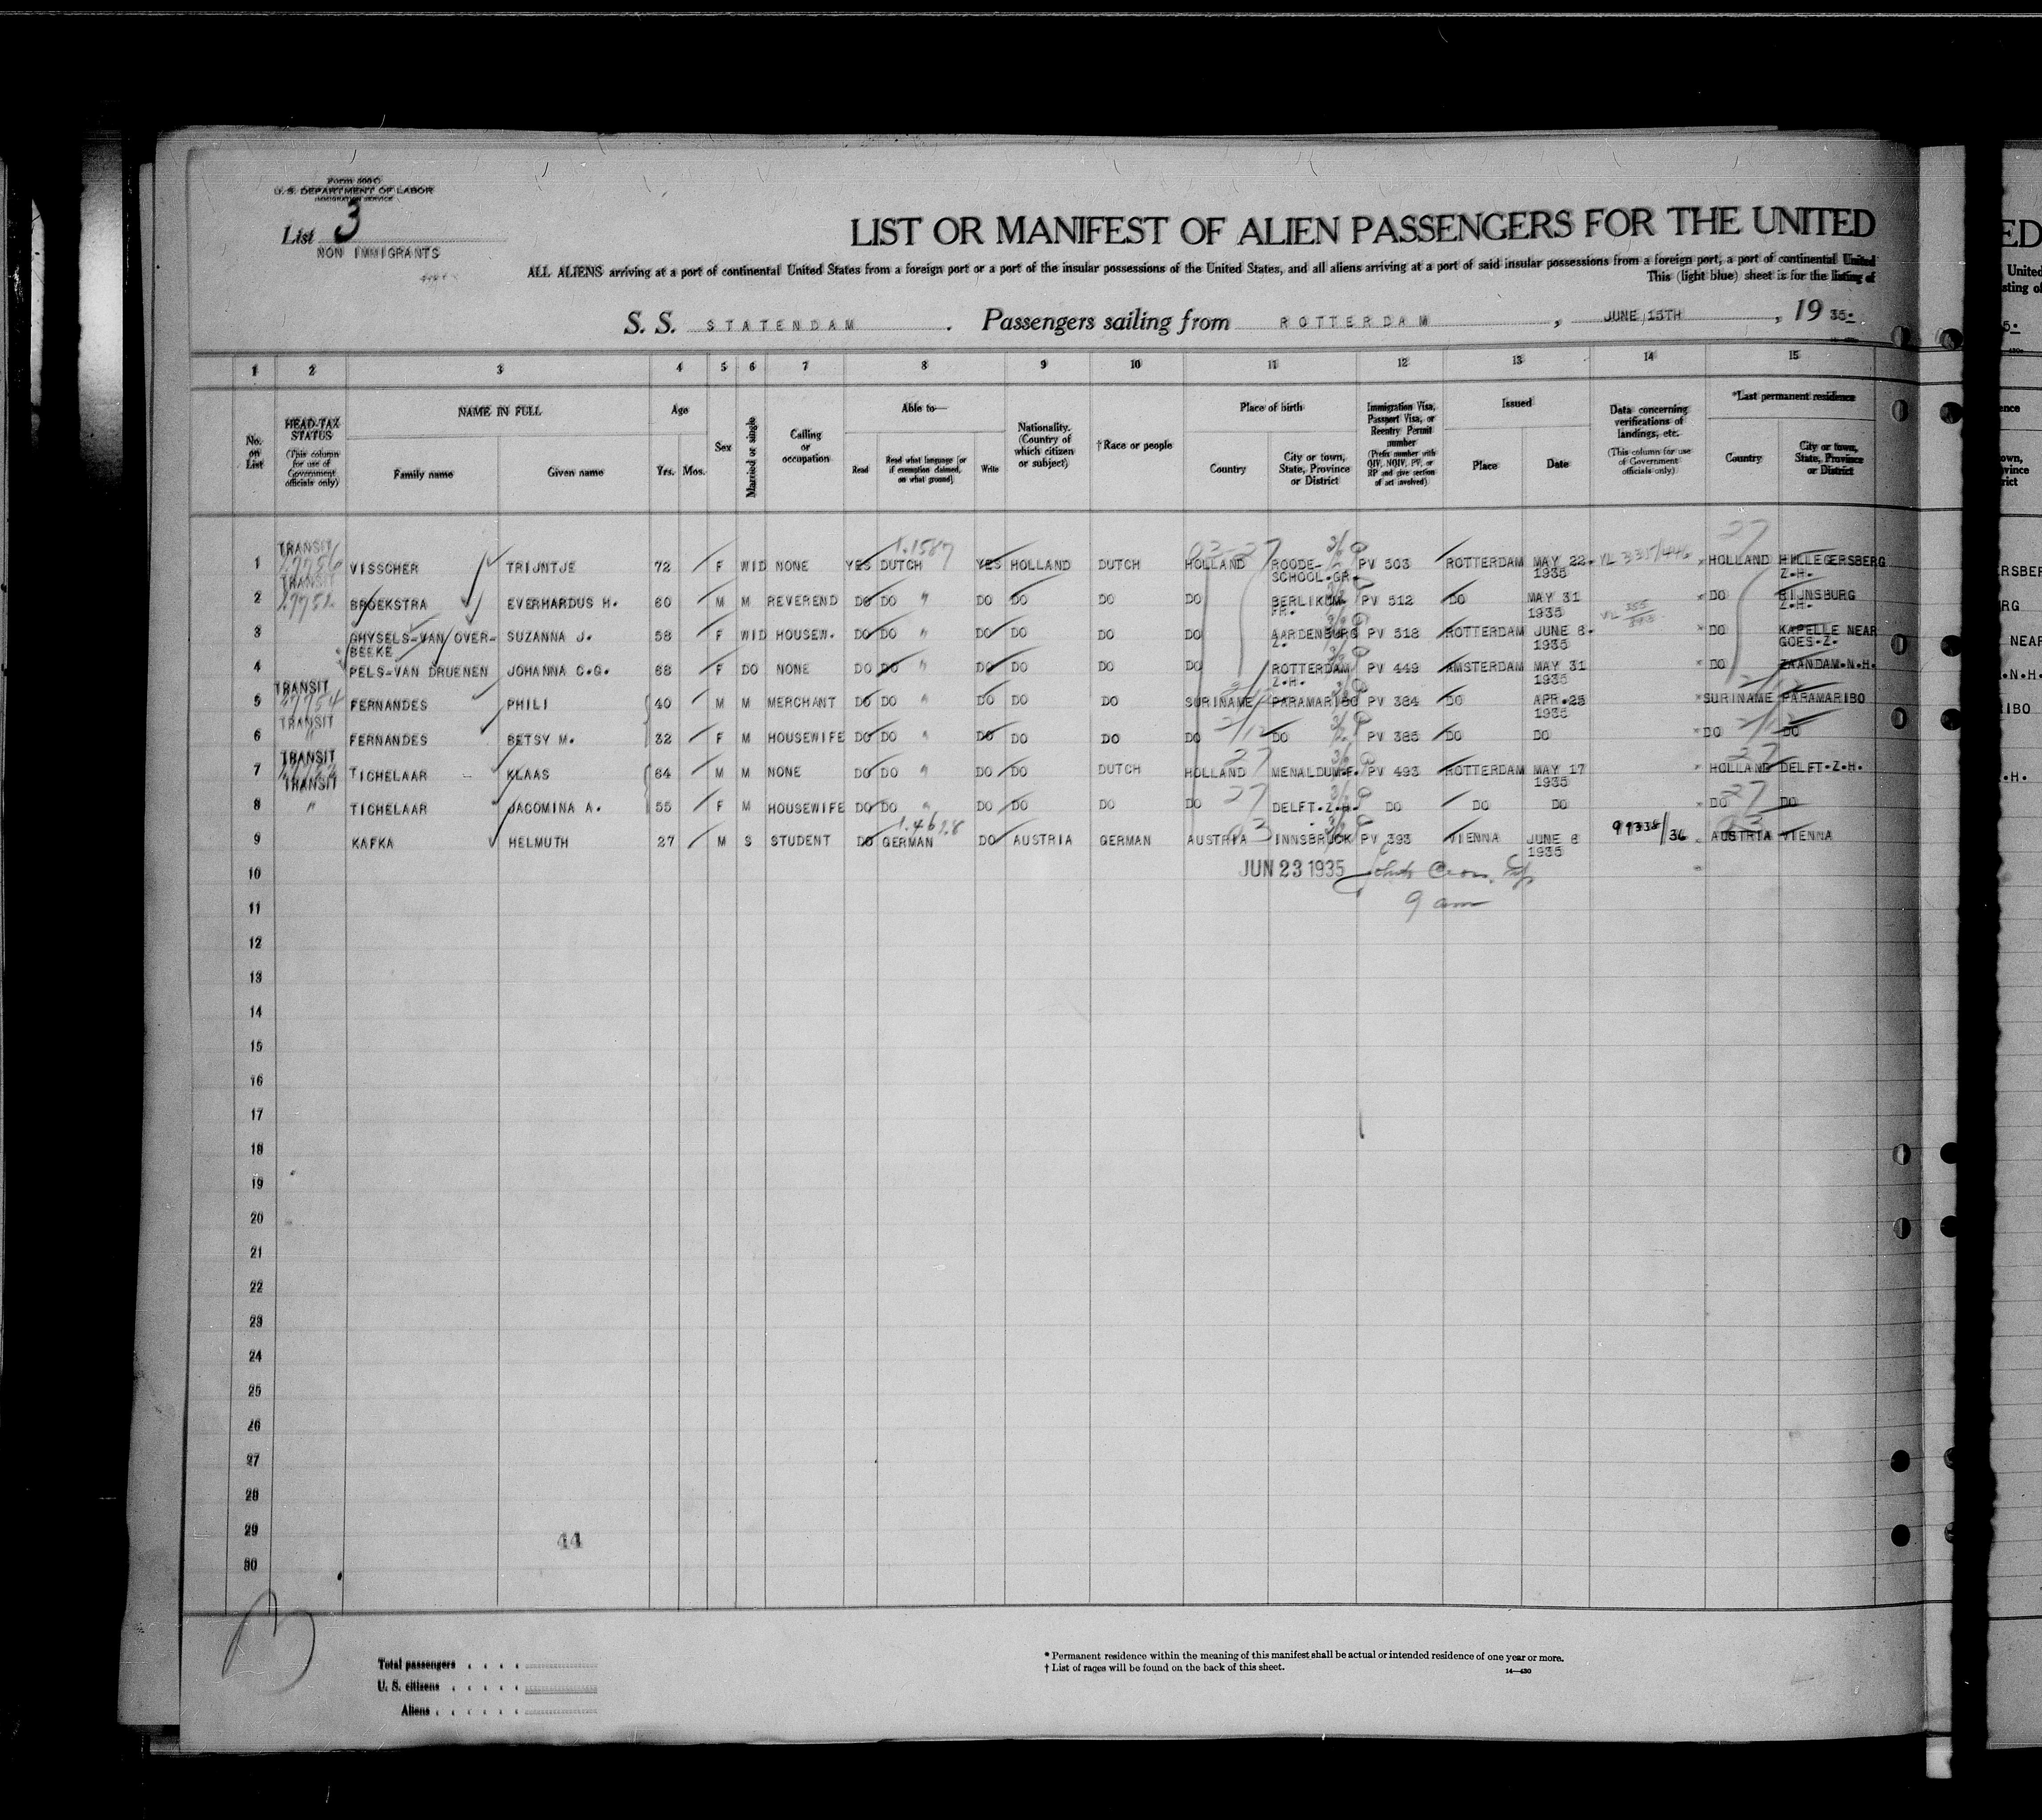 Form 500 C
U. S. DEPARTMENT OF LABOR
IMMIGRATION SERVICE
List 3
NON IMMIGRANTS
LIST OR MANIFEST OF ALIEN PASSENGERS FOR THE UNITED
ALL ALIENS arriving at a port of continental United States from a foreign port or a port of the insular possessions of the United States, and all aliens arriving at a port of said insular possessions from a foreign port, a port of continental United
This (light blue) sheet is for the listing of
S. S. STATENDAM. Passengers sailing from ROTTERDAM, JUNE 15TH, 1935.
1 2 3 4 5 6 7 8 9 10 11 12 13 14 15
No. on List
HEAD-TAX STATUS (This column for use of Government officials only)
NAME IN FULL
Family name Given name
Age
Yrs. Mos.
Sex
Married or single
Calling or occupation
Able to—
Read
Read what language [or if exemption claimed, on what ground]
Write
Nationality. (Country of which citizen or subject)
† Race or people
Place of birth
Country
City or town, State, Province or District
Immigration Visa, Passport Visa, or Reentry Permit number
(Prefix number with QIV, NQIV, PV, or RP and give section of act involved)
Issued
Place Date
Data concerning verifications of landings, etc.
(This column for use of Government officials only)
*Last permanent residence
Country
City or town, State, Province or District
1 TRANSIT VISSCHER TRIJNTJE 72 F WID NONE YES DUTCH YES HOLLAND DUTCH HOLLAND ROODE-SCHOOL.GR. PV 503 ROTTERDAM MAY 22. 1935 HOLLAND HILLEGERSBERG Z.H.
2 TRANSIT BROEKSTRA EVERHARDUS H. 60 M M REVEREND DO DO " DO DO DO DO BERLIKUM. FR. PV 512 DO MAY 31 1935 DO RIJNSBURG Z.H.
3 GHYSELS-VAN OVER-BEEKE SUZANNA J. 58 F WID HOUSEW. DO DO " DO DO DO DO AARDENBURG Z. PV 518 ROTTERDAM JUNE 6. 1935 DO KAPELLE NEAR GOES.Z.
4 PELS-VAN DRUENEN JOHANNA C.G. 68 F DO NONE DO DO " DO DO DO DO ROTTERDAM Z.H. PV 449 AMSTERDAM MAY 31 1935 DO ZAANDAM.N.H.
5 TRANSIT FERNANDES PHILI 40 M M MERCHANT DO DO " DO DO DO SURINAME PARAMARIBO PV 384 DO APR.25 1935 SURINAME PARAMARIBO
6 TRANSIT " FERNANDES BETSY M. 32 F M HOUSEWIFE DO DO " DO DO DO DO DO PV 385 DO DO DO DO
7 TRANSIT TICHELAAR KLAAS 64 M M NONE DO DO " DO DO DUTCH HOLLAND MENALDUM.F. PV 493 ROTTERDAM MAY 17 1935 HOLLAND DELFT.Z.H.
8 TRANSIT " TICHELAAR JACOMINA A. 55 F M HOUSEWIFE DO DO " DO DO DO DO DELFT.Z.H. DO DO DO DO DO
9 KAFKA HELMUTH 27 M S STUDENT DO GERMAN DO AUSTRIA GERMAN AUSTRIA INNSBRUCK PV 393 VIENNA JUNE 6 1935 99338/36 AUSTRIA VIENNA
10 JUN 23 1935
11 9 am
12
13
14
15
16
17
18
19
20
21
22
23
24
25
26
27
28
29
30
44
Total passengers
U. S. citizens
Aliens
* Permanent residence within the meaning of this manifest shall be actual or intended residence of one year or more.
† List of races will be found on the back of this sheet.
14—430